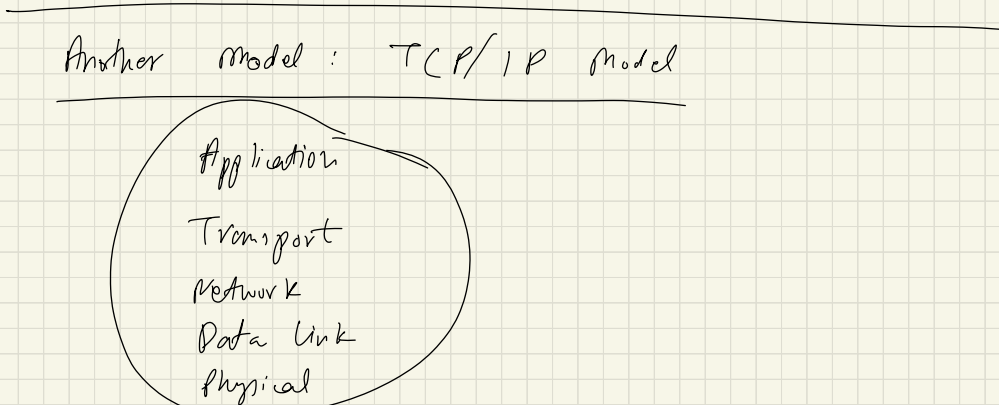 Another Model : TCP/IP Model
Application
Transport
Network
Data Link
Physical